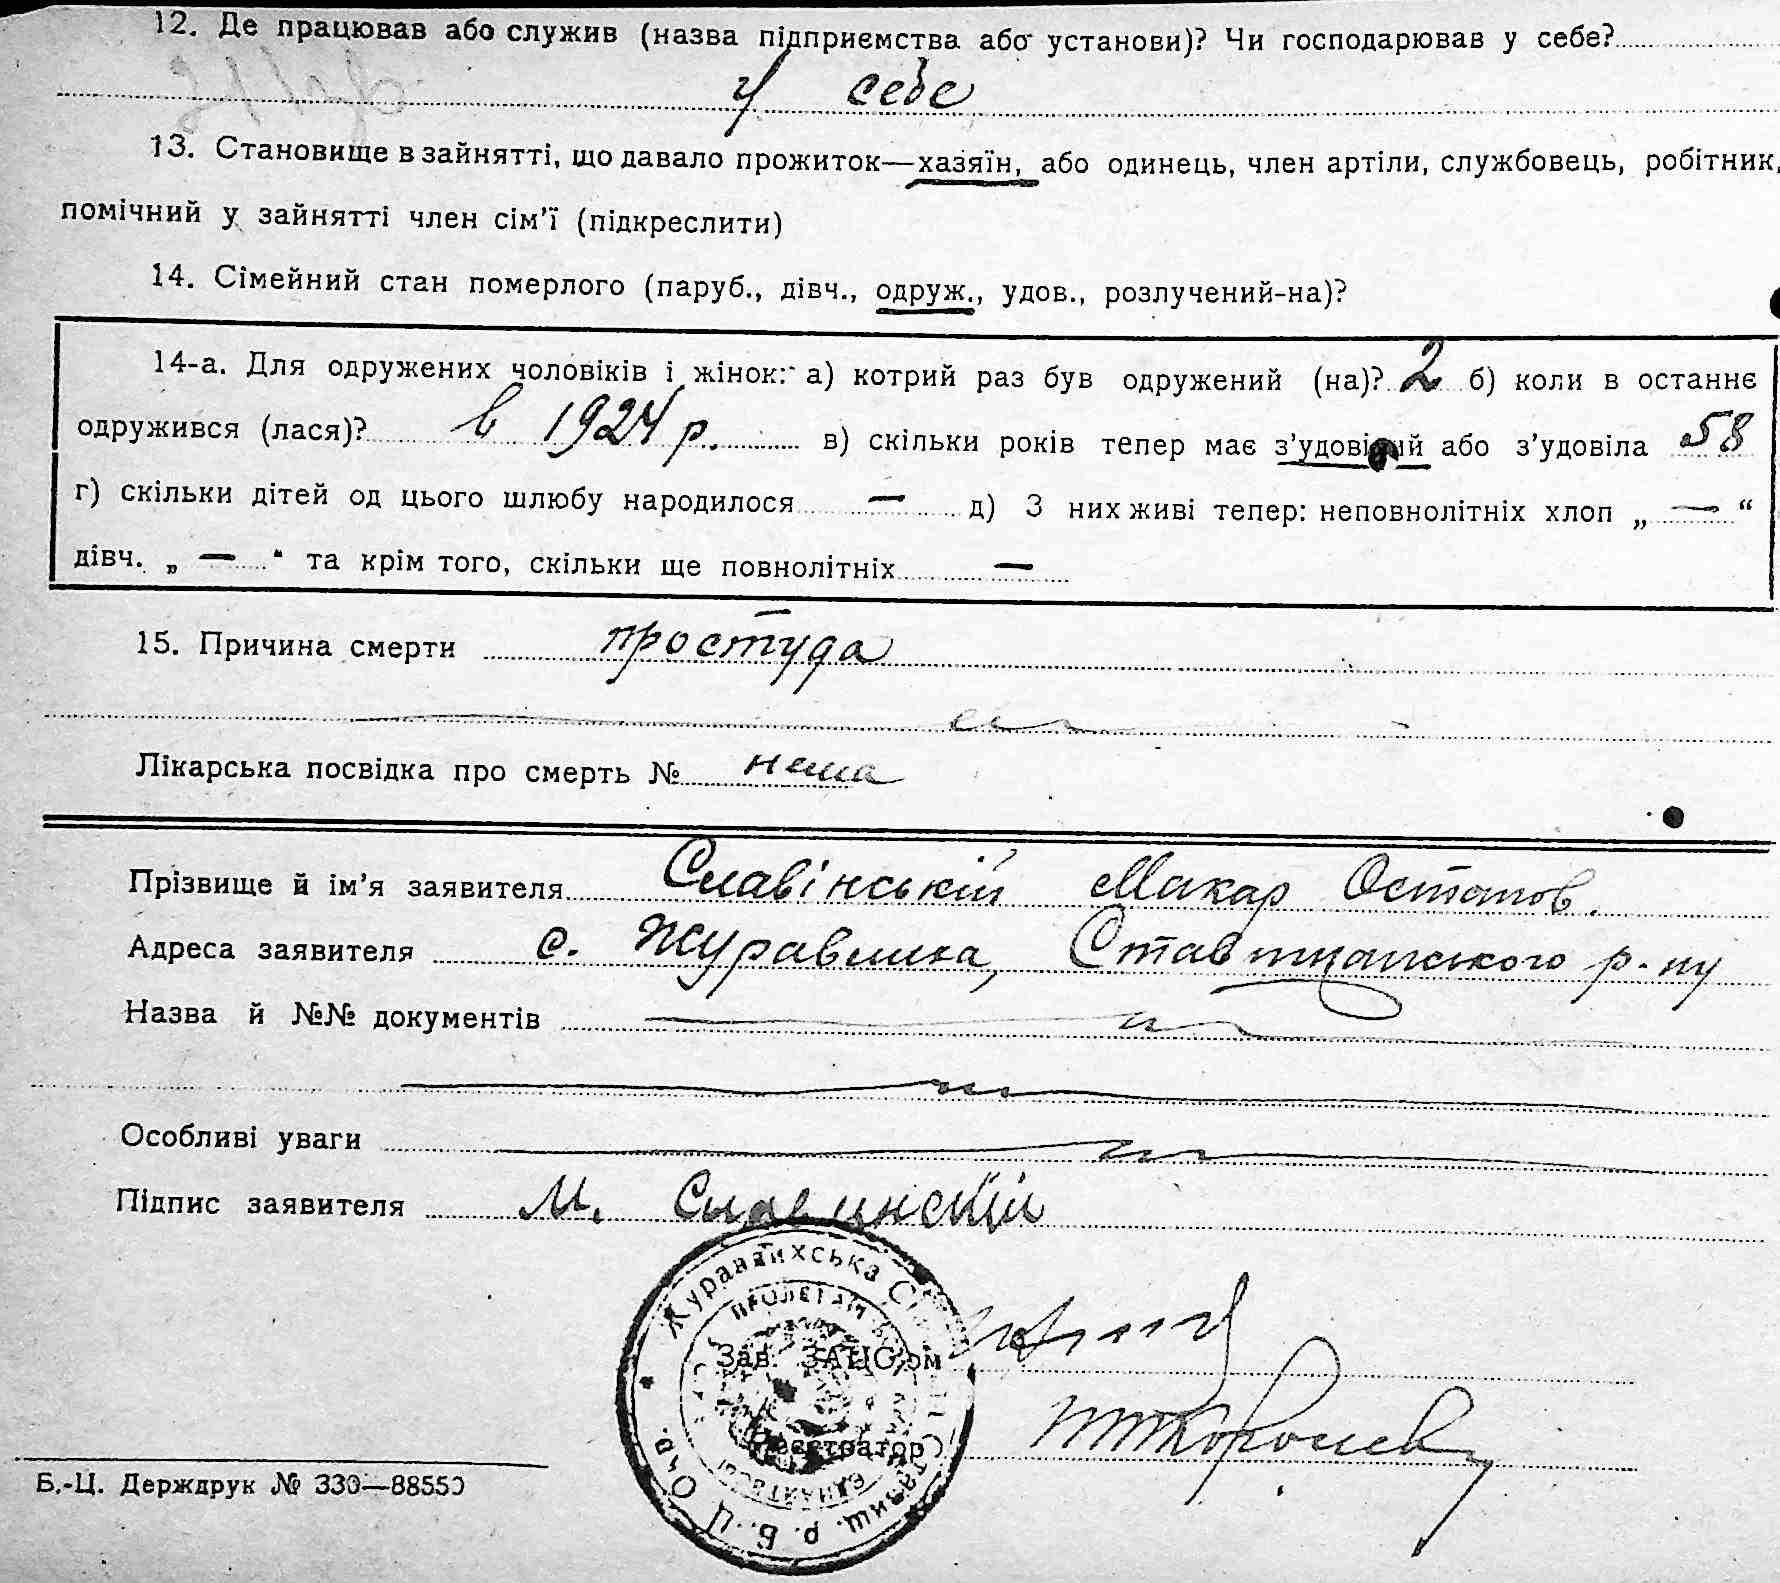 12. Де працював або служив (назва підприємства або установи)? Чи господарював у себе?
у себе
13. Становище в зайнятті, що давало прожиток—хазяїн, або одинець, член артіли, службовець, робітник,
помічний у зайнятті член сім’ї (підкреслити)
14. Сімейний стан померлого (паруб., дівч., одруж., удов., розлучений-на)?
14-а. Для одружених чоловіків і жінок: а) котрий раз був одружений (на)? 2 б) коли в останнє
одружився (лася)? в 1924 р. в) скільки років тепер має з’удовілий або з’удовіла 58
г) скільки дітей од цього шлюбу народилося — д) З них живі тепер: неповнолітніх хлоп „ — “
дівч. „ — “ та крім того, скільки ще повнолітніх —
15. Причина смерти простуда
Лікарська посвідка про смерть № нема
Прізвище й ім’я заявителя Славінській Макар Остапов.
Адреса заявителя с. Журавлиха, Ставищанського р-ну
Назва й №№ документів
Особливі уваги
Підпис заявителя М. Славинский
Журавлихська
Зав. ЗАЦС’ом
Реєстратор
Ставищ. р. Б.-Ц. Окр.
Б.-Ц. Держдрук № 330—88550